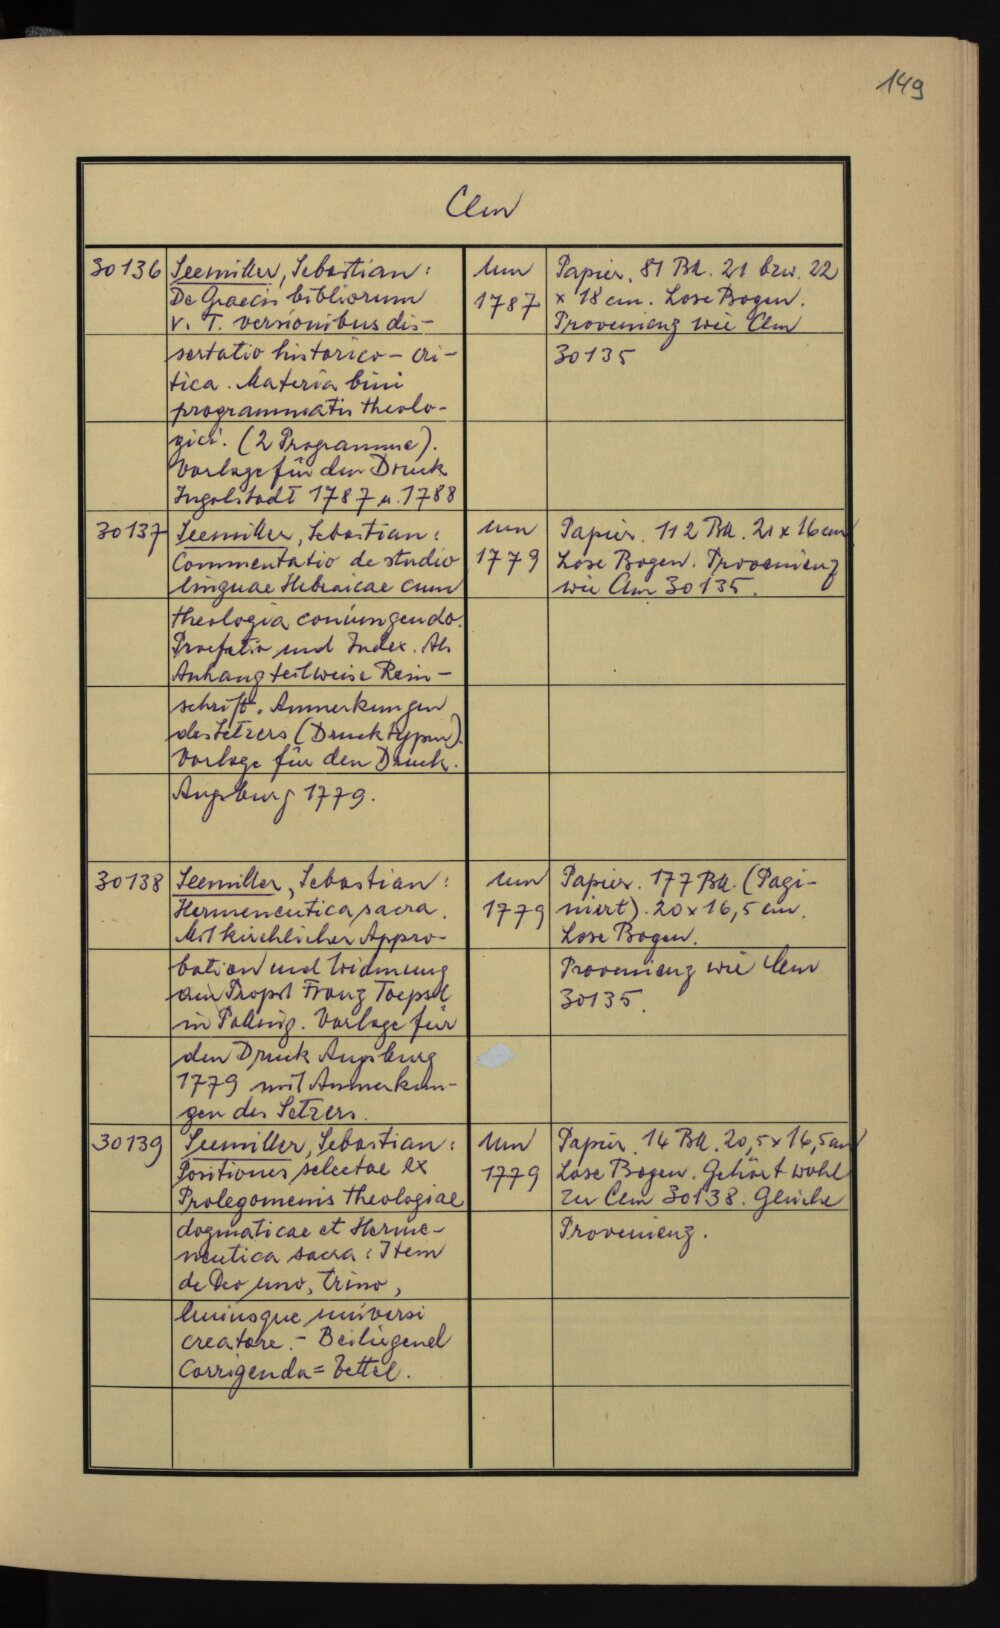 149
Clm
30136
Seemiller, Sebastian:
De Graecis bibliorum
V. T. versionibus dis-
sertatio historico-cri-
tica. Materia bini
programmatis theolo-
gici. (2 Programme).
Vorlage für den Druck
Ingolstadt 1787 u. 1788
um
1787
Papier. 81 Bll. 21 bzw. 22
x 18 cm. Lose Bogen.
Provenienz wie Clm
30135
30137
Seemiller, Sebastian:
Commentatio de studio
linguae Hebraicae cum
theologia coniungendo.
Praefatio und Index. Als
Anhang teilweise Rein-
schrift. Anmerkungen
des Setzers (Drucktypen).
Vorlage für den Druck.
Augsburg 1779.
um
1779
Papier. 112 Bll. 21 x 16 cm
Lose Bogen. Provenienz
wie Clm 30135.
30138
Seemiller, Sebastian:
Hermeneutica sacra.
Mit kirchlicher Appro-
bation und Widmung
an Propst Franz Toepsl
in Polling. Vorlage für
den Druck Augsburg
1779 mit Anmerkun-
gen des Setzers.
um
1779
Papier. 177 Bll. (Pagi-
niert). 20 x 16,5 cm.
Lose Bogen.
Provenienz wie Clm
30135.
30139
Seemiller, Sebastian:
Positiones selectae ex
Prolegomenis theologiae
dogmaticae et Herme-
neutica sacra: Item
de Deo uno, trino,
huiusque universi
creatore. - Beiliegend
Corrigenda=Zettel.
um
1779
Papier. 14 Bll. 20,5 x 16,5 cm
Lose Bogen. Gehört wohl
zu Clm 30138. Gleiche
Provenienz.